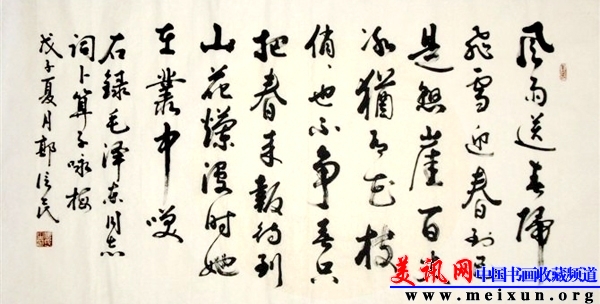 风雨送春歸
飞雪迎春到已
是悬崖百丈
冰猶有花枝
俏、也不争春只
把春来報待到
山花爛漫时她
在叢中咲
右録毛泽东同志
词卜算子咏梅
戊子夏月郭信民
美讯网 中国书画收藏频道
www.meixun.org